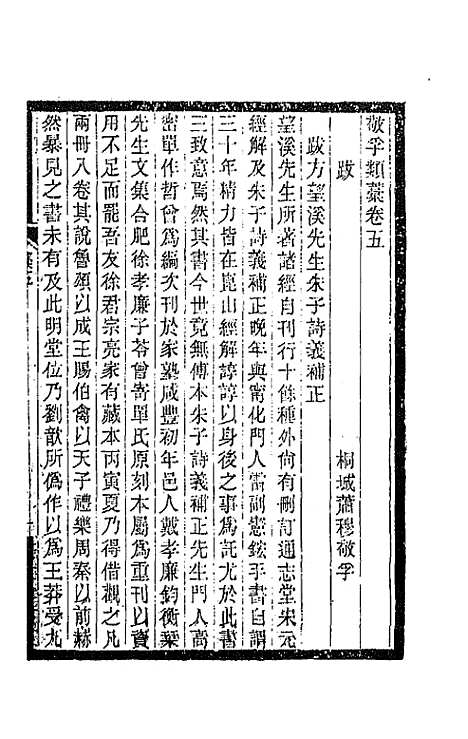 敬孚類藁卷五
桐城蕭穆敬孚
跋
跋方望溪先生朱子詩義補正
望溪先生所著諸經自刊行十餘種外尙有刪訂通志堂宋元
經解及朱子詩義補正晚年與甯化門人雷副憲鋐手書自謂
三十年精力皆在崑山經解諄諄以身後之事爲託尤於此書
三致意焉然其書今世竟無傳本朱子詩義補正先生門人高
密單作哲曾爲編次刊於家塾咸豐初年邑人戴孝廉鈞衡槀
先生文集合肥徐孝廉子苓曾寄單氏原刻本屬爲重刊以資
用不足而罷吾友徐君宗亮家有藏本丙寅夏乃得借觀之凡
兩冊八卷其說魯頌以成王賜伯禽以天子禮樂周秦以前赫
然暴見之書未有及此明堂位乃劉歆所僞作以爲王莽受九